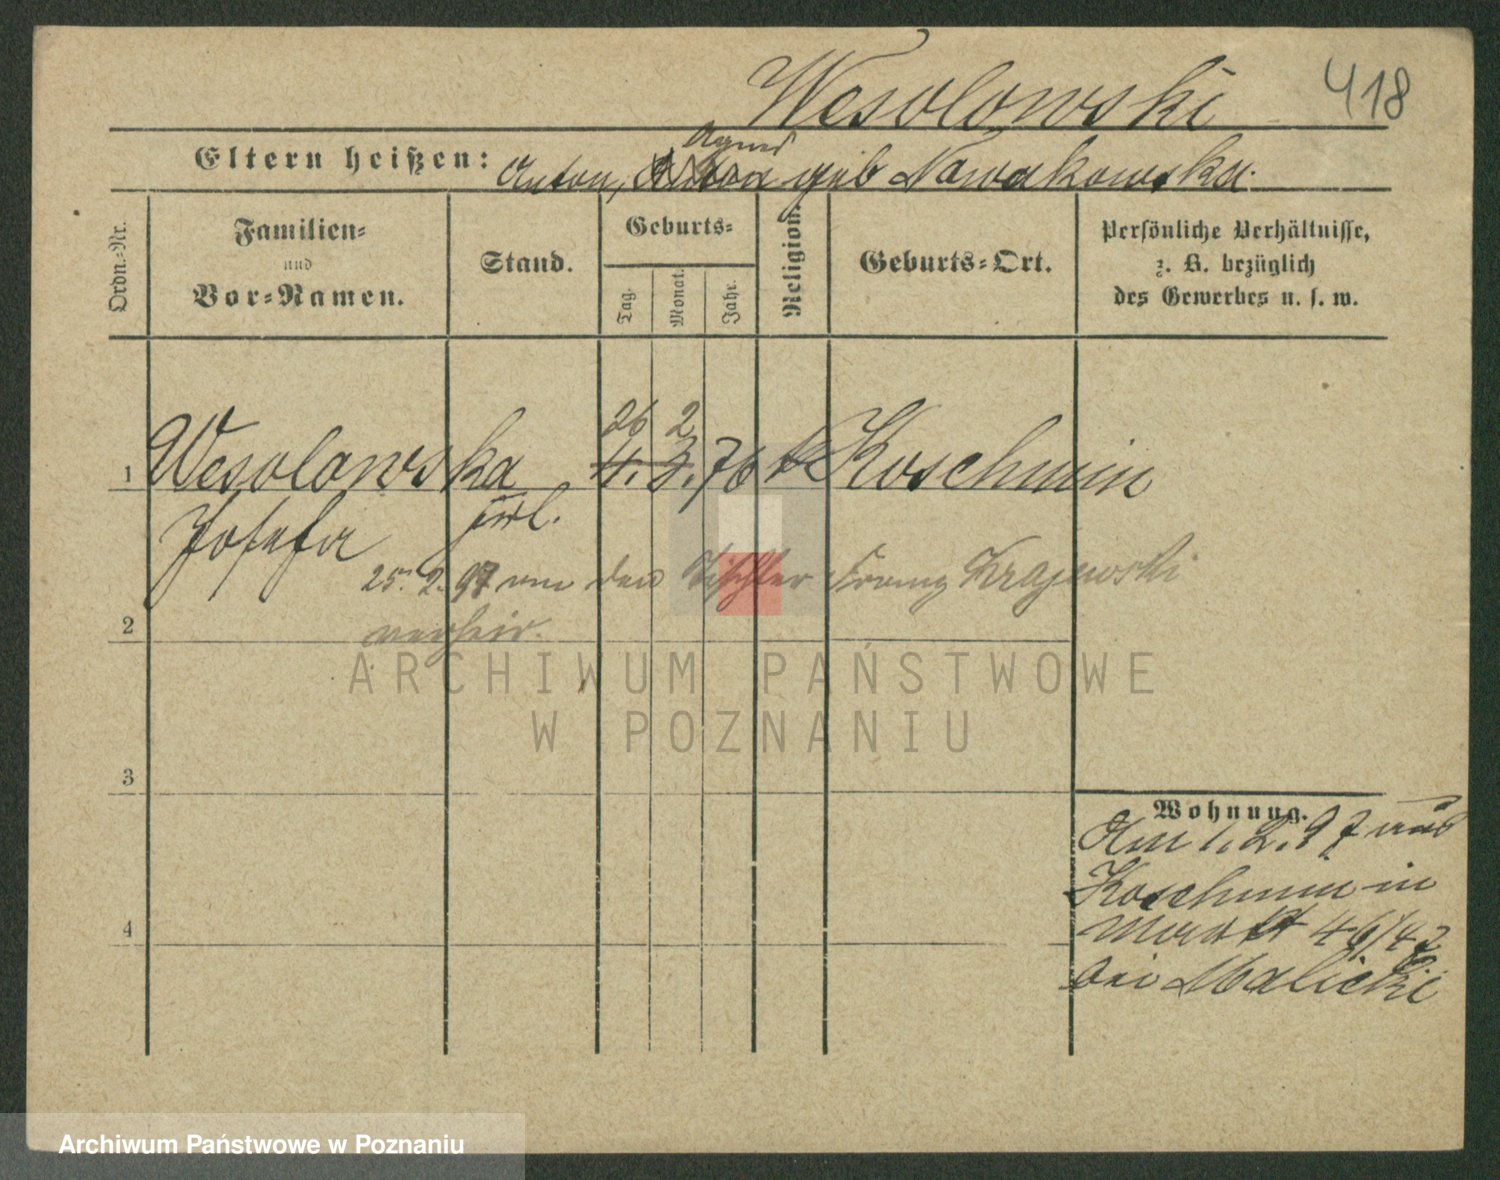 418
Wesolowski
Eltern heißen: Anton, Agnes geb Nowakowska.
Ordn.-Nr.
Familien-
und
Vor-Namen.
Stand.
Geburts-
Tag.
Monat.
Jahr.
Religion.
Geburts-Ort.
Persönliche Verhältnisse,
z. B. bezüglich
des Gewerbes u. s. w.
26 2
1 Wesolowska 4. 3. 76 k Koschmin
Josefa
25. 2. 97 den Tischler Franz Krajewski
verheir.
2
ARCHIWUM PAŃSTWOWE
W POZNANIU
3
Wohnung.
Am 1. 2. 97 aus
Koschmin in
4
bei Malicki
Archiwum Państwowe w Poznaniu